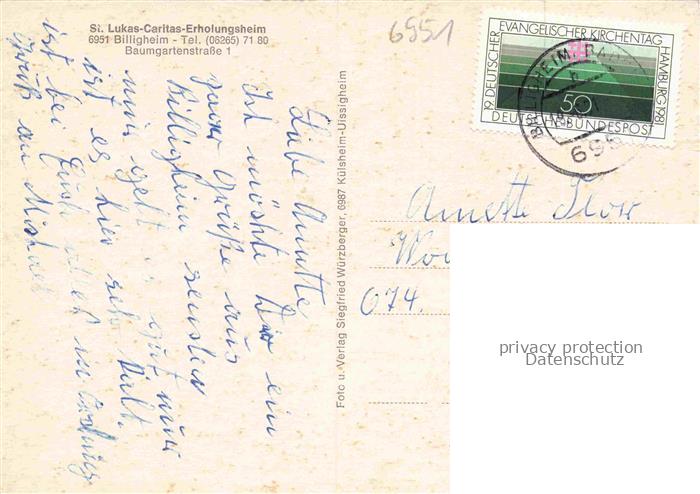 St. Lukas-Caritas-Erholungsheim
6951 Billigheim - Tel. (06265) 71 80
Baumgartenstraße 1
6951
19. DEUTSCHER EVANGELISCHER KIRCHENTAG HAMBURG 1981
50
DEUTSCHE BUNDESPOST
695
Liebe Anette
Ich möchte Dir ein
paar Grüße aus
Billigheim senden
mir geht es gut nur
ist es hier sehr kalt.
ist bei Euch alles in Ordnung
Gruß an Michael
Foto u. Verlag Siegfried Würzberger, 6987 Külsheim-Uissigheim
Anette
074.
privacy protection
Datenschutz